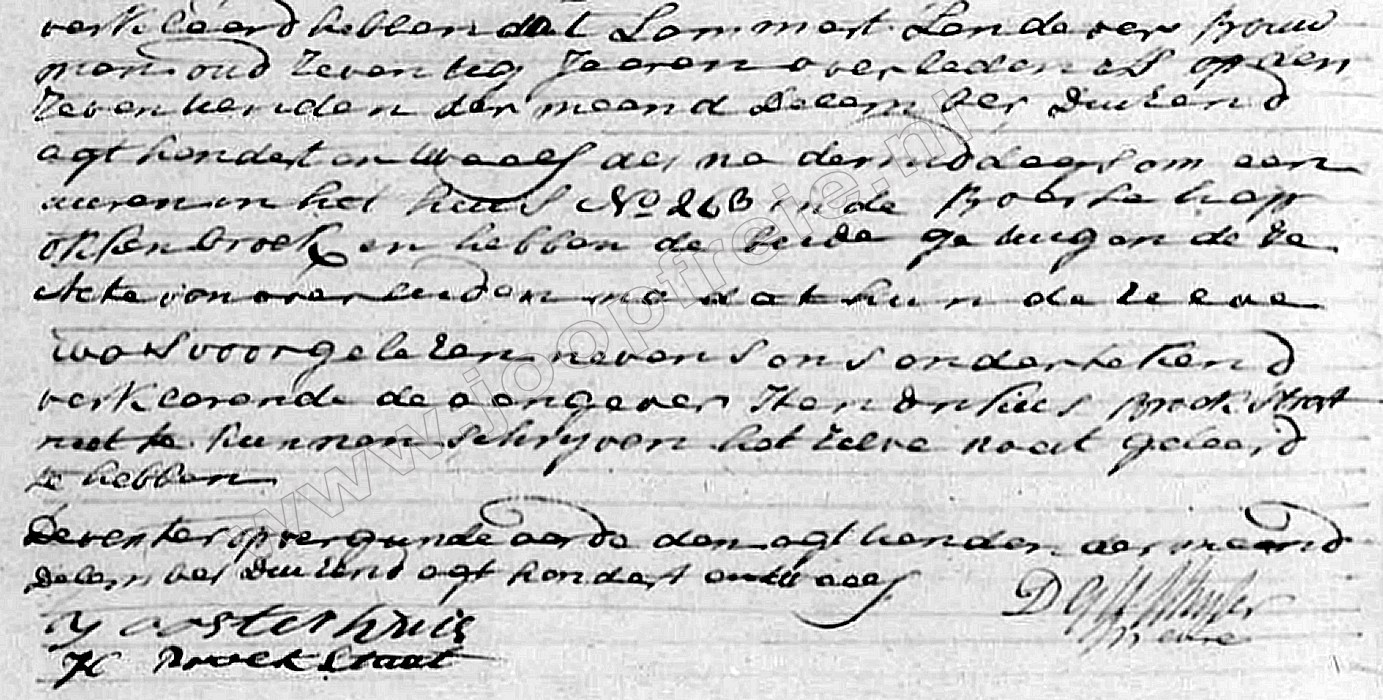 verkleerd hebben dat Lammert Lendever Brouw
man oud zeventig Jaaren overleden is op den
zevenhenden der maand Decem ber Duizend
agt hondert en twaalf des na dermiddaags om een
uuren in het huis No 26B in de Boerschap
oksenbroek en hebben de beide getuigen deze
Acte van overleiden na dat hun de zelve
was voorgelezen nevens ons onderteekend
verklarende de aangever Hendrikus Broekstraat
niet te kunnen schryven het zelve nooit geleerd
te hebben
Deventer op vergunde aarde den agthenden der maand
December Duizend agt hondert en twaalf
J oosterhuis
H Broekstraat
www.joopfreie.nl